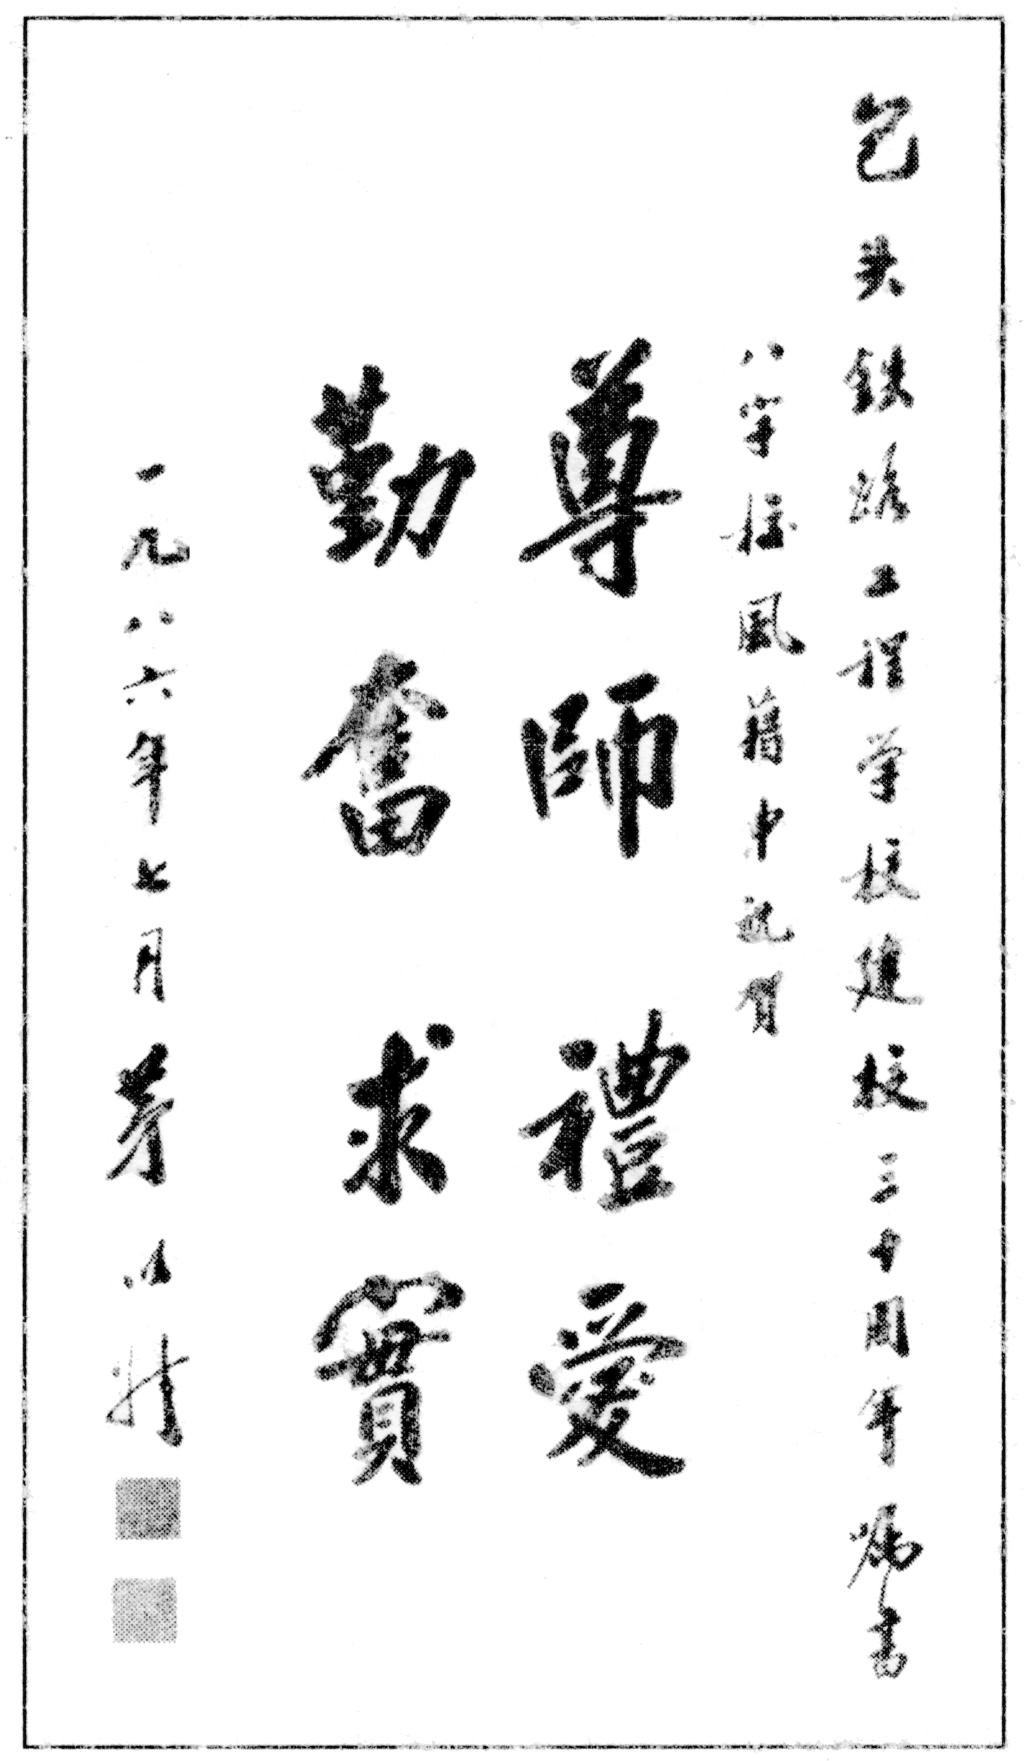 包头铁路工程学校建校三十周年嘱书
八字校风藉申祝贺
尊師禮愛
勤奮求實
一九八六年七月茅以升